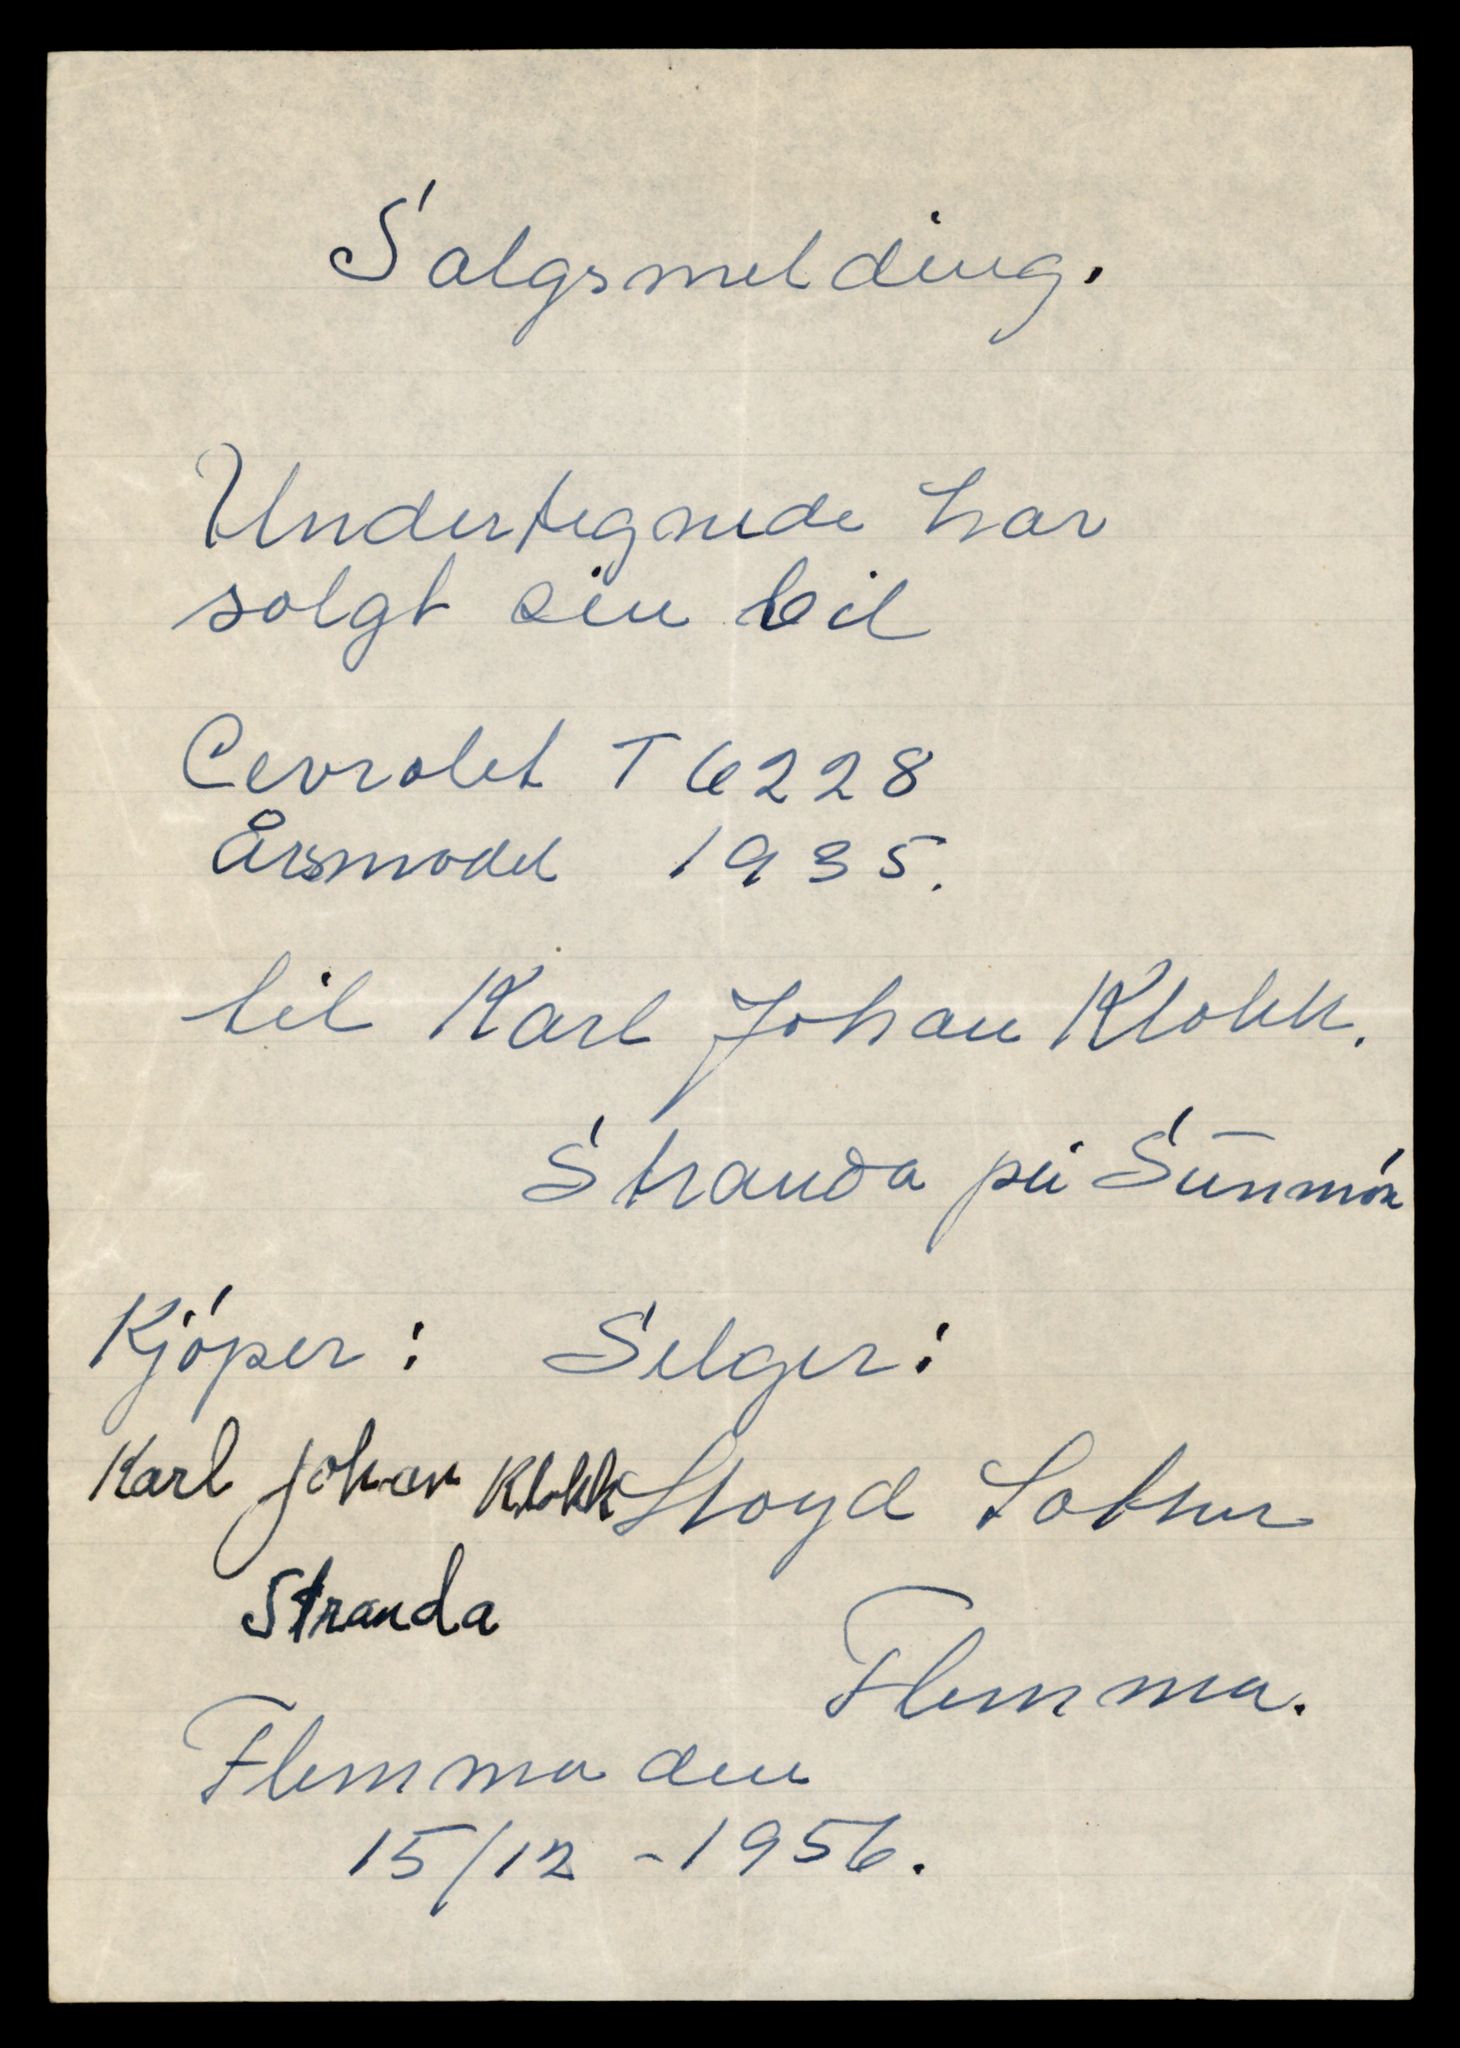 Salgsmelding.
Undertegnede har
solgt sin bil
Cevrolet T6228
Årsmodel 1935.
til Karl Johan Klokk.
Stranda på Sunmör
Kjöper: Selger:
Karl Johan Klokk Lloyd
Stranda
Flemma.
Flemma den
15/12 - 1956.